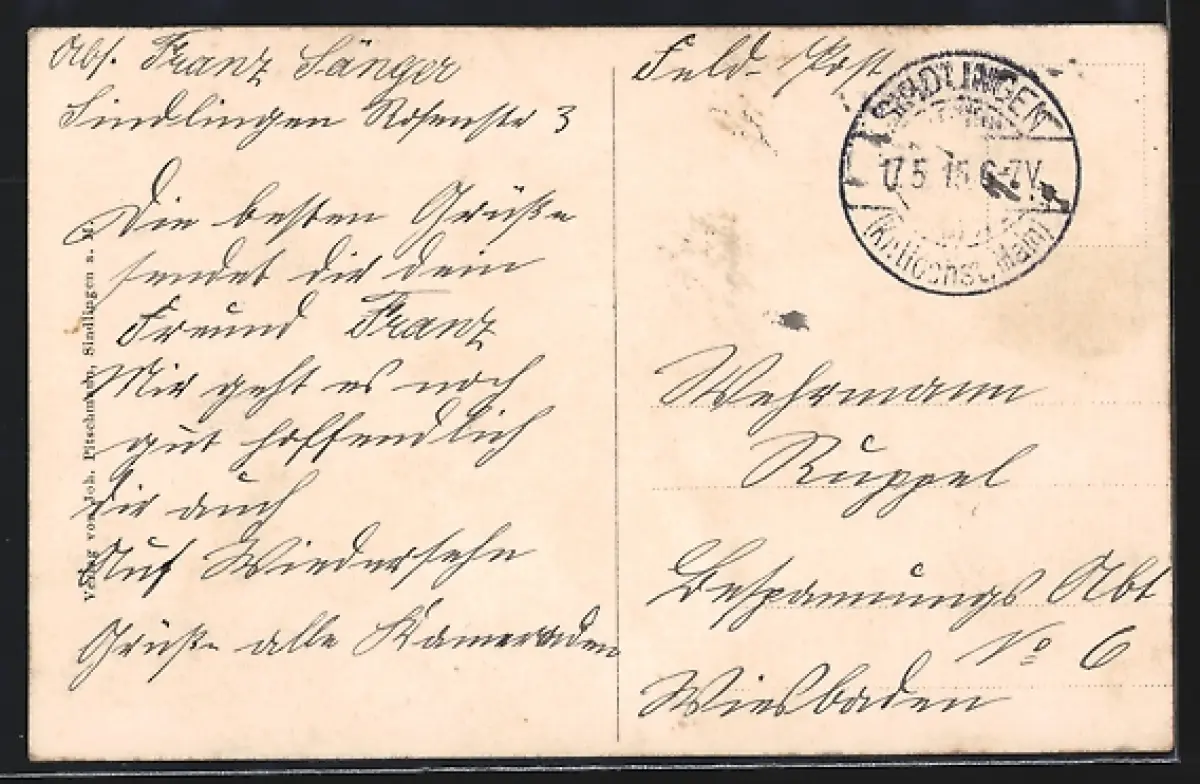 Abs. Franz Sänger
Sindlingen Rosenstr 3
Die besten Grüße
sendet dir dein
Freund Franz
Mir geht es noch
gut hoffendlich
dir auch
Auf Wiedersehn
Grüße alle Kameraden
Verlag von Joh. Pitschmann, Sindlingen a. M.
Feld-Post
SINDLINGEN
17.5.15.6-7V.
(Kr. Höchst, Main)
Wehrmann
Ruppel
Bespannungs Abt
No 6
Wiesbaden